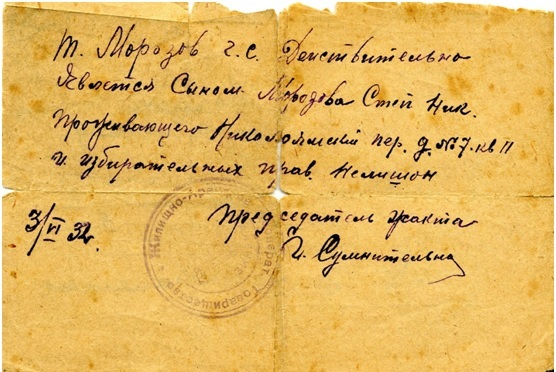 т. Морозов Г.С. Действительно
Является Сыном Морозова Степ Ник.
проживающего Николоямский пер. д. №7. кв 11
и избирательных прав. Нелишон
Председатель жакта
3/VI 32.
Сумнительно
Жилищно-Аренд
Товарищество